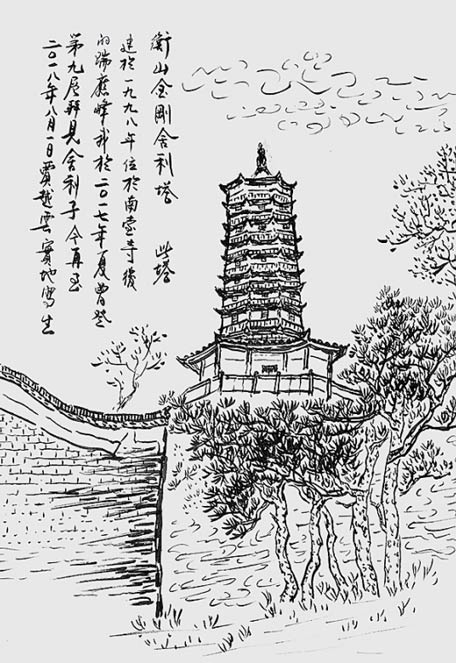 衡山金剛舍利塔 此塔
建於一九九八年位於南臺寺後
的瑞應峰我於二〇一七年夏曾登
第九層拜見舍利子今再至
二〇一八年八月一日賈越雲實地寫生